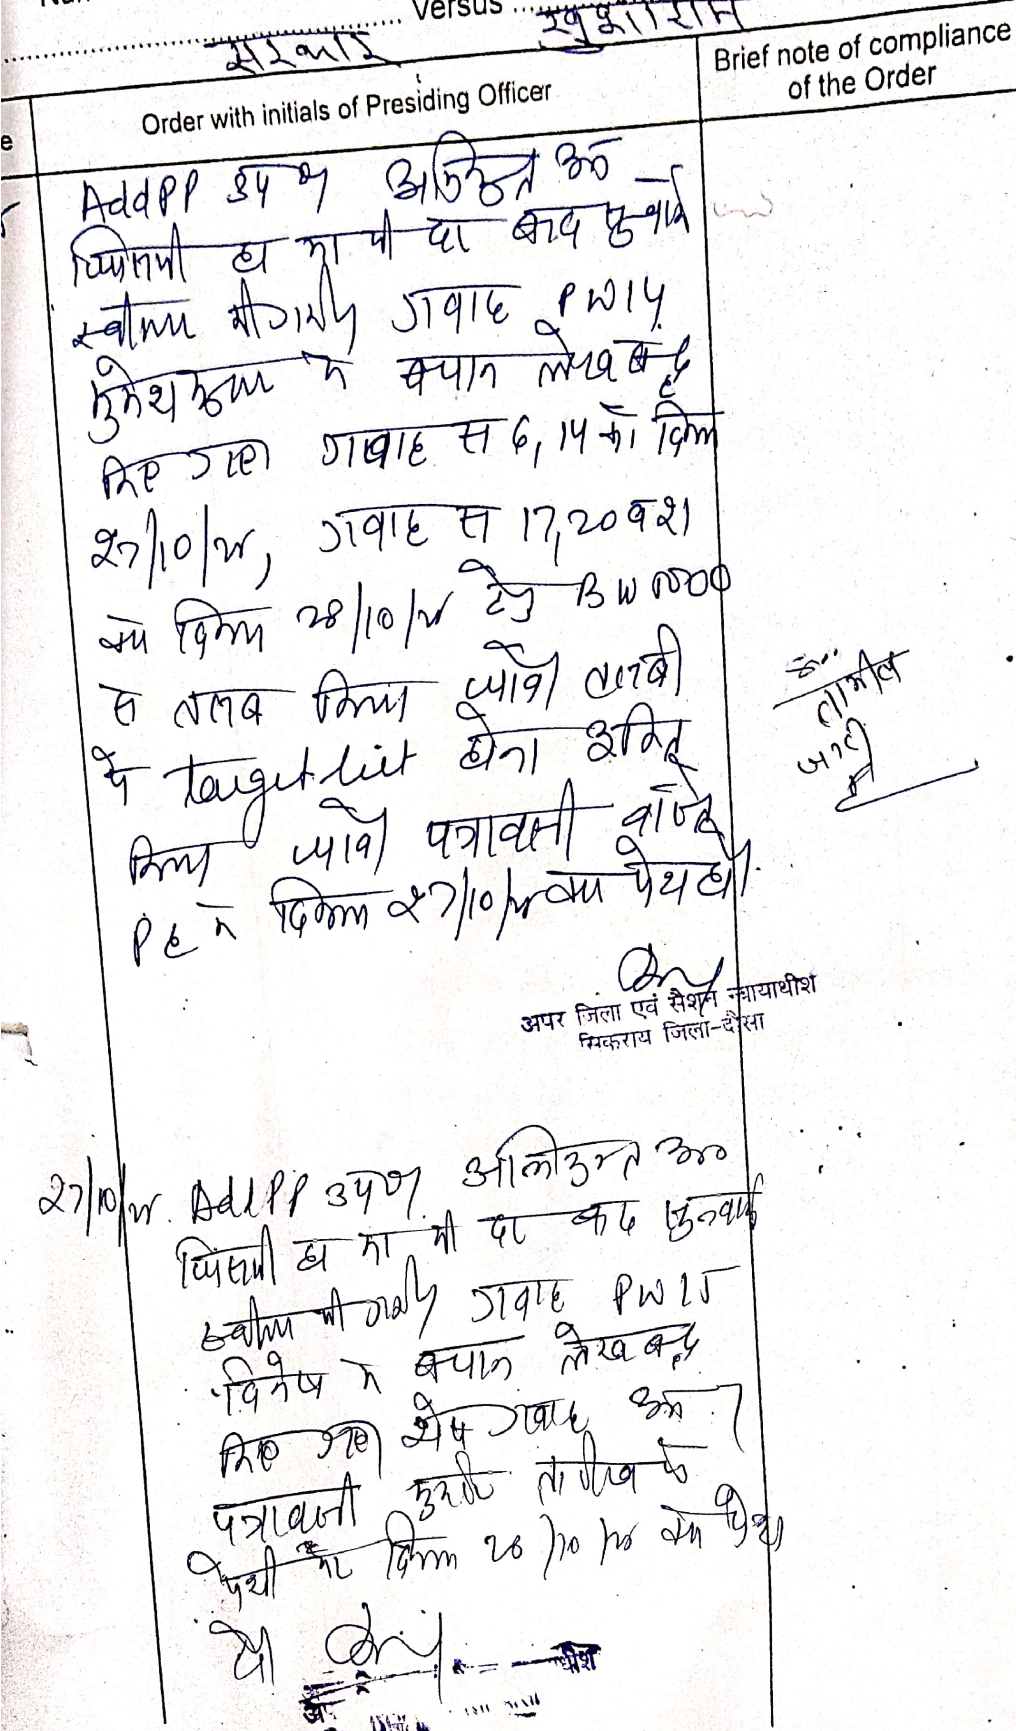 Versus
सरकार खुशीराम
Order with initials of Presiding Officer
Brief note of compliance
of the Order
Add PP उप० अभियुक्त अनु०
हा० मा० पी० दी० बाद
स्वीकार की गयी गवाह PW14
मुकेश कुमार के बयान लेखबद्ध
किए गए। गवाह स 6, 14 को दिनांक
27/10/25, गवाह स 17, 20 व 21
को दिनांक 28/10/25 हेतु BW 1000
से तलब किया जावे। तलबी
में target list होना अंकित
किया जावे। पत्रावली वास्ते
PE के दिनांक 27/10/25 को पेश हो।
तामील
जारी
अपर जिला एवं सैशन न्यायाधीश
सिकराय जिला-दौसा
27/10/25 Add PP उप० अभियुक्त अनु०
हा० मा० पी० दी० बाद
स्वीकार की गयी गवाह PW15
विनेष के बयान लेखबद्ध
किए गए। शेष गवाह अनु०
पत्रावली मुकर्रर तारीख
पेशी पर दिनांक 28/10/25 को पेश
हो।